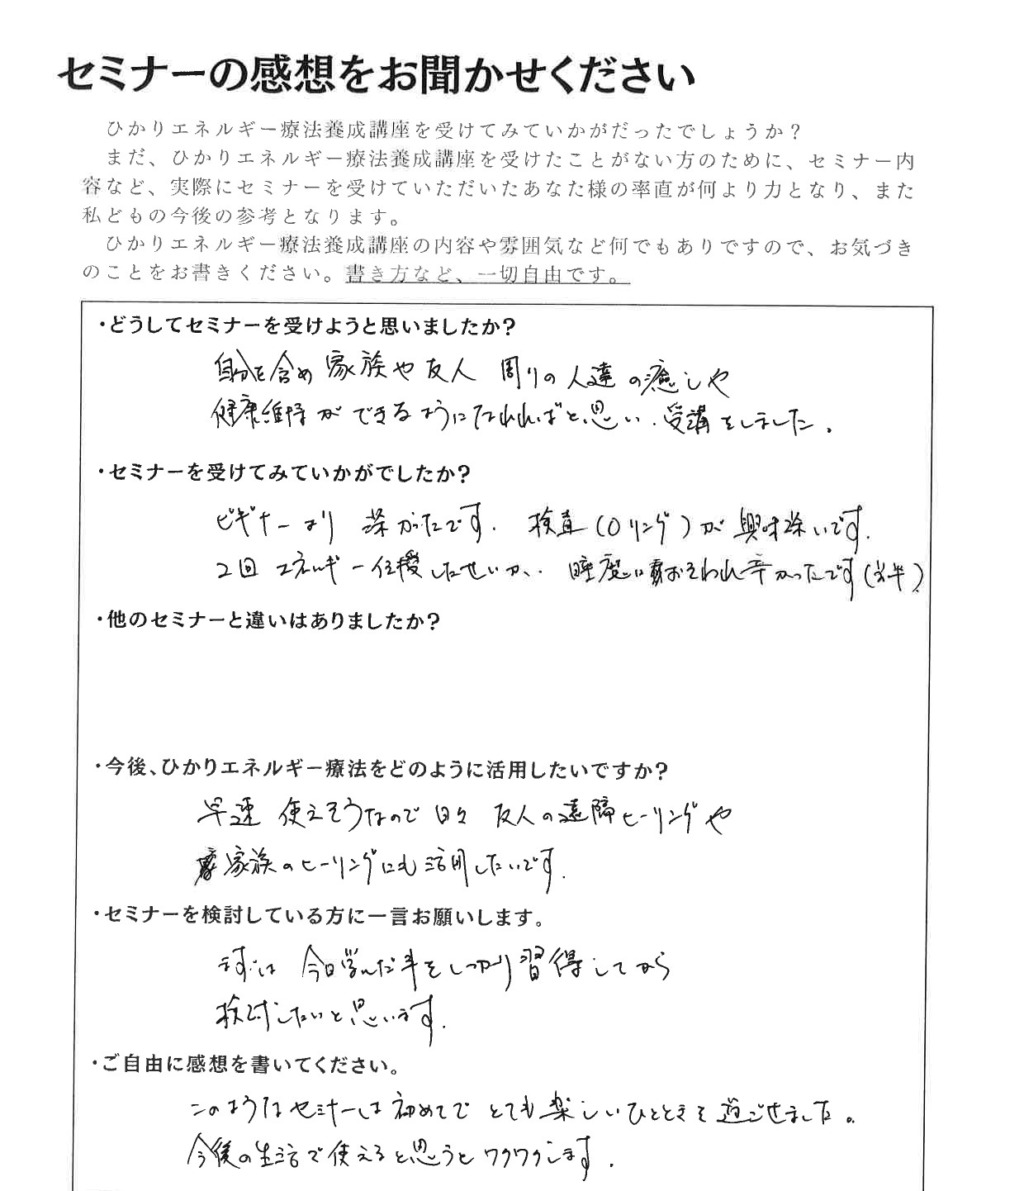 セミナーの感想をお聞かせください
ひかりエネルギー療法養成講座を受けてみていかがだったでしょうか？
まだ、ひかりエネルギー療法養成講座を受けたことがない方のために、セミナー内
容など、実際にセミナーを受けていただいたあなた様の率直が何より力となり、また
私どもの今後の参考となります。
ひかりエネルギー療法養成講座の内容や雰囲気など何でもありですので、お気づき
のことをお書きください。書き方など、一切自由です。
・どうしてセミナーを受けようと思いましたか？
自分を含め 家族や友人 周りの人達の癒しや
健康維持ができるようになれればと思い、受講をしました。
・セミナーを受けてみていかがでしたか？
ビギナーより 深かったです. 検査(Oリング)が興味深いです.
2回エネルギー伝授したせいか、睡魔におそわれ辛かったです(後半)
・他のセミナーと違いはありましたか？
・今後、ひかりエネルギー療法をどのように活用したいですか？
早速 使えそうなので 日々 友人の遠隔ヒーリングや
家族のヒーリングにも活用したいです.
・セミナーを検討している方に一言お願いします。
まずは 今日学んだ事をしっかり習得してから
検討したいと思います.
・ご自由に感想を書いてください。
このようなセミナーは初めてで とても楽しいひとときを過ごせました。
今後の生活で使えると思うとワクワクします.